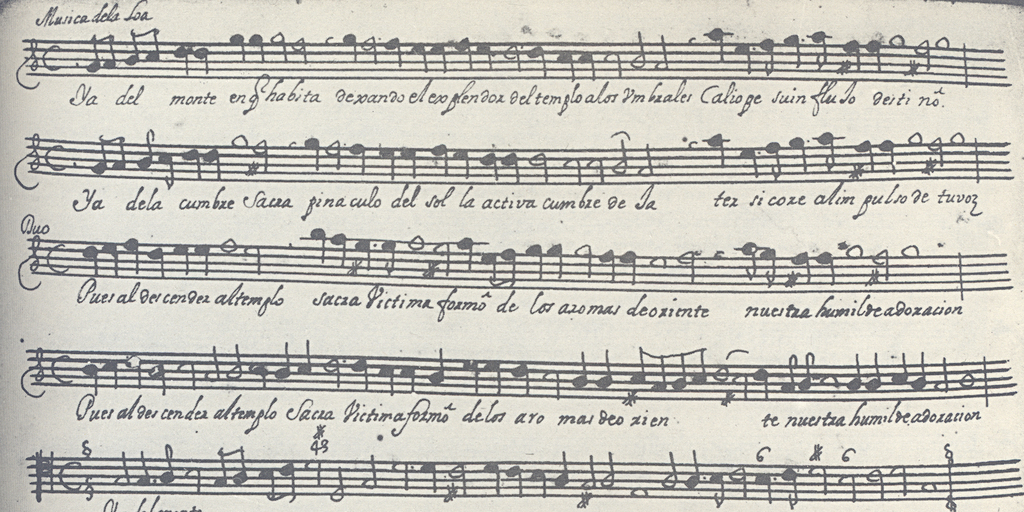 Musica dela Loa
Ya del monte en q̃ habita dexando el explendor del templo alos Vmbrales Caliope su influxo destinõ.
Ya dela cumbre Sacra pinaculo del sol la activa cumbre de Ja ter si core al impulso de tu voz
Duo
Pues al descender al templo sacra Victima formõ de los aromas de oriente nuestra humilde adoracion
Pues al descender al templo Sacra Victima formõ de los aro mas de o rien te nuestra humilde adoracion
43
6 6